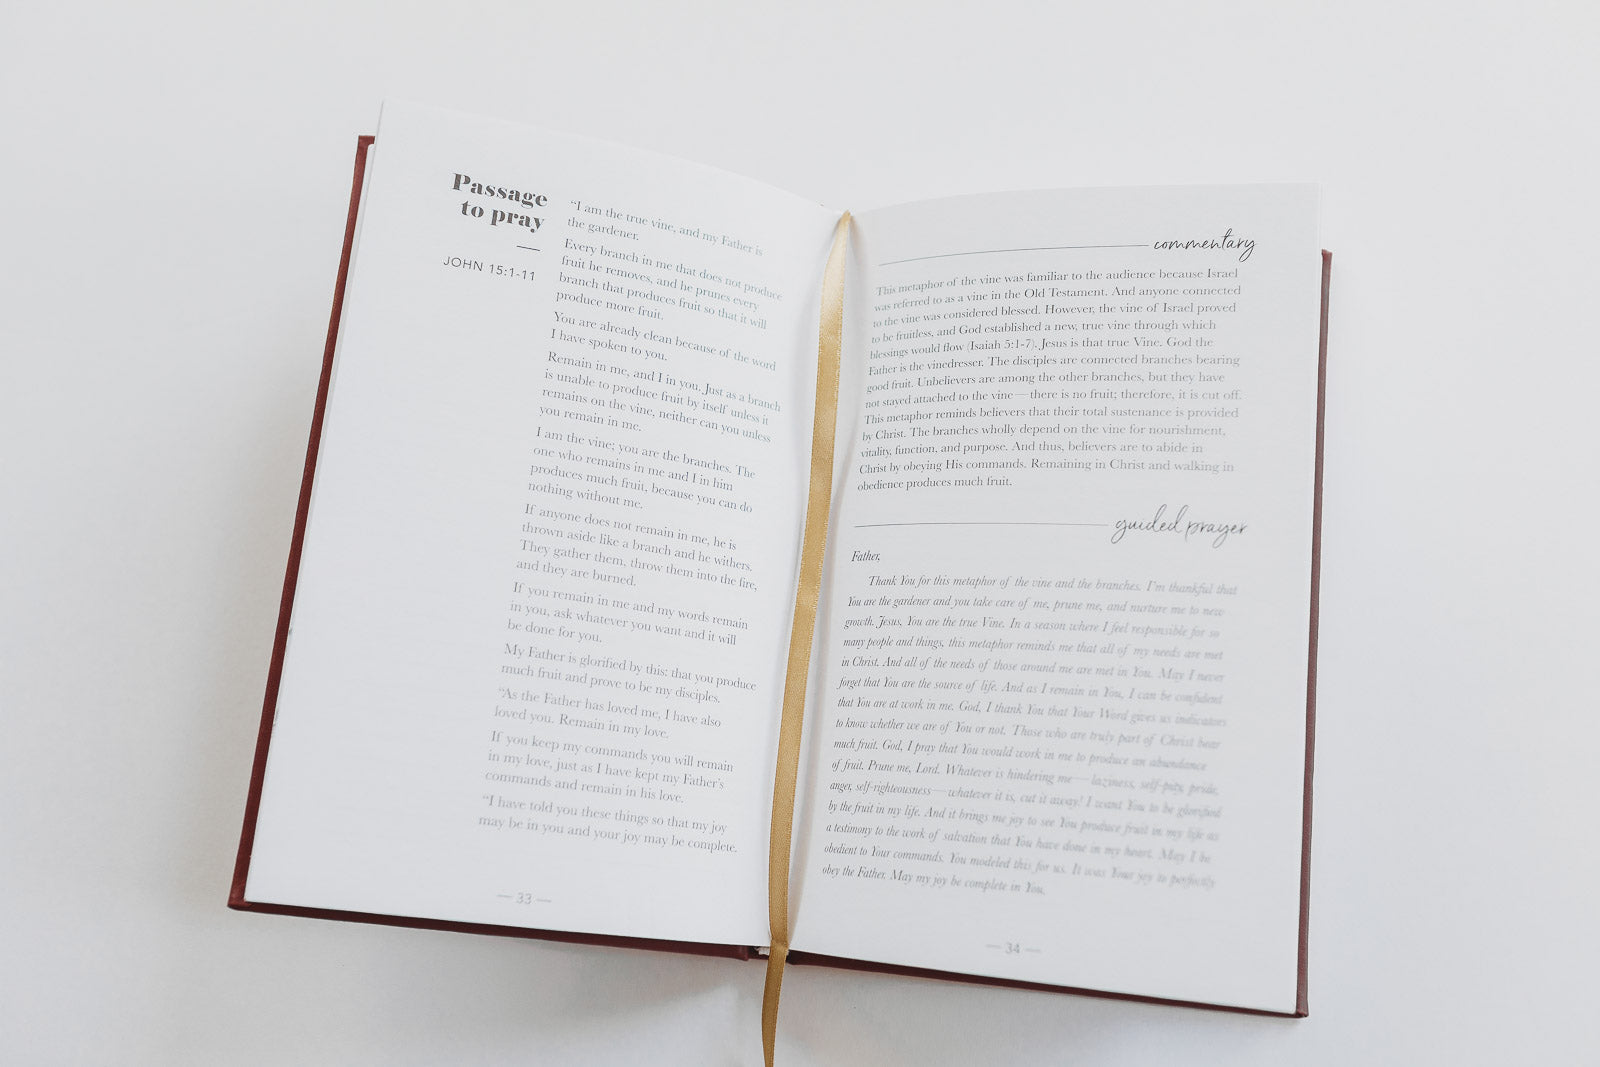 Passage
to pray
JOHN 15:1-11
“I am the true vine, and my Father is
the gardener.
Every branch in me that does not produce
fruit he removes, and he prunes every
branch that produces fruit so that it will
produce more fruit.
You are already clean because of the word
I have spoken to you.
Remain in me, and I in you. Just as a branch
is unable to produce fruit by itself unless it
remains on the vine, neither can you unless
you remain in me.
I am the vine; you are the branches. The
one who remains in me and I in him
produces much fruit, because you can do
nothing without me.
If anyone does not remain in me, he is
thrown aside like a branch and he withers.
They gather them, throw them into the fire,
and they are burned.
If you remain in me and my words remain
in you, ask whatever you want and it will
be done for you.
My Father is glorified by this: that you produce
much fruit and prove to be my disciples.
“As the Father has loved me, I have also
loved you. Remain in my love.
If you keep my commands you will remain
in my love, just as I have kept my Father’s
commands and remain in his love.
“I have told you these things so that my joy
may be in you and your joy may be complete.
— 33 —
commentary
This metaphor of the vine was familiar to the audience because Israel
was referred to as a vine in the Old Testament. And anyone connected
to the vine was considered blessed. However, the vine of Israel proved
to be fruitless, and God established a new, true vine through which
blessings would flow (Isaiah 5:1-7). Jesus is that true Vine. God the
Father is the vinedresser. The disciples are connected branches bearing
good fruit. Unbelievers are among the other branches, but they have
not stayed attached to the vine—there is no fruit; therefore, it is cut off.
This metaphor reminds believers that their total sustenance is provided
by Christ. The branches wholly depend on the vine for nourishment,
vitality, function, and purpose. And thus, believers are to abide in
Christ by obeying His commands. Remaining in Christ and walking in
obedience produces much fruit.
guided prayer
Father,
Thank You for this metaphor of the vine and the branches. I’m thankful that
You are the gardener and you take care of me, prune me, and nurture me to new
growth. Jesus, You are the true Vine. In a season where I feel responsible for so
many people and things, this metaphor reminds me that all of my needs are met
in Christ. And all of the needs of those around me are met in You. May I never
forget that You are the source of life. And as I remain in You, I can be confident
that You are at work in me. God, I thank You that Your Word gives us indicators
to know whether we are of You or not. Those who are truly part of Christ bear
much fruit. God, I pray that You would work in me to produce an abundance
of fruit. Prune me, Lord. Whatever is hindering me—laziness, self-pity, pride,
anger, self-righteousness—whatever it is, cut it away! I want You to be glorified
by the fruit in my life. And it brings me joy to see You produce fruit in my life as
a testimony to the work of salvation that You have done in my heart. May I be
obedient to Your commands. You modeled this for us. It was Your joy to perfectly
obey the Father. May my joy be complete in You.
— 34 —